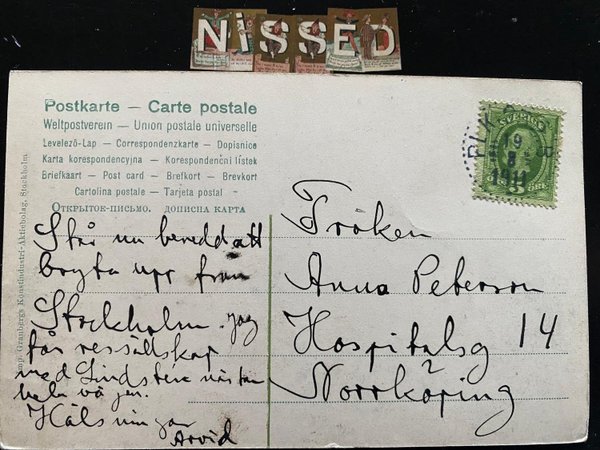 NiSSED
Postkarte — Carte postale
Weltpostverein — Union postale universelle
Levelező-Lap — Correspondenzkarte — Dopisnice
Karta korespondencyjna — Korespondenční lístek
Briefkaart — Post card — Brefkort — Brevkort
Cartolina postale — Tarjeta postal
Открытое-письмо. дописна карта
SVERIGE
5 ÖRE
19
8
1911
Står nu beredd att
bryta upp från
Stockholm. Jag
får ressällskap
med Lindstein nästan
hela vägen.
Hälsningar
Arvid
Fröken
Anna Peterson
Hospitalsg 14
2
Norrköping
Granbergs Konstindustri-Aktiebolag, Stockholm